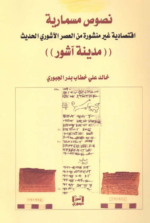 نصوص مسمارية
اقتصادية غير منشورة من العصر الآشوري الحديث
((مدينة آشور))
خالد علي خطاب بدر الجبوري